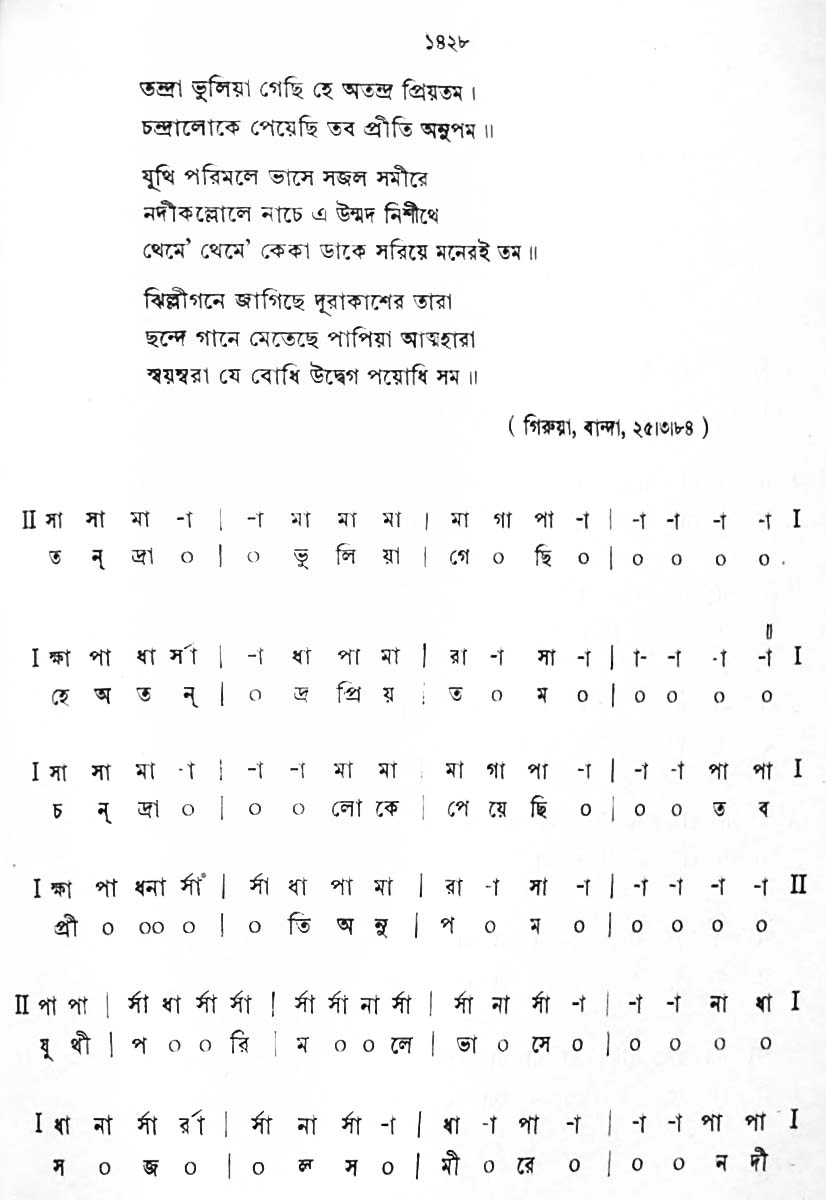 ১৪২৮
তন্দ্রা ভুলিয়া গেছি হে অতন্দ্র প্রিয়তম ।
চন্দ্রালোকে পেয়েছি তব প্রীতি অনুপম ॥
যূথি পরিমলে ভাসে সজল সমীরে
নদীকল্লোলে নাচে এ উন্মদ নিশীথে
থেমে' থেমে' কেকা ডাকে সরিয়ে মনেরই তম ॥
ঝিল্লীগনে জাগিছে দূরাকাশের তারা
ছন্দে গানে মেতেছে পাপিয়া আত্মহারা
স্বয়ম্বরা যে বোধি উদ্বেগ পয়োধি সম ॥
( গিরুয়া, বান্দা, ২৫।৩।৮৪ )
II সা সা মা -া | -া মা মা মা | মা গা পা -া | -া -া -া -া I
ত ন্ দ্রা ০ | ০ ভু লি য়া | গে ০ ছি ০ | ০ ০ ০ ০ .
I ক্ষা পা ধা র্সা | -া ধা পা মা | রা -া সা -া | া- -া -া -া I
হে অ ত ন্ | ০ দ্র প্রি য় | ত ০ ম ০ | ০ ০ ০ ০
I সা সা মা -া | -া -া মা মা | মা গা পা -া | -া -া পা পা I
চ ন্ দ্রা ০ | ০ ০ লো কে | পে য়ে ছি ০ | ০ ০ ত ব
I ক্ষা পা ধনা র্সাঁ | র্সা ধা পা মা | রা -া সা -া | -া -া -া -া II
প্রী ০ ০০ ০ | ০ তি অ নু | প ০ ম ০ | ০ ০ ০ ০
II পা পা | র্সা ধা র্সা র্সা | র্সা র্সা না র্সা | র্সা না র্সা -া | -া -া না ধা I
যূ থী | প ০ ০ রি | ম ০ ০ লে | ভা ০ সে ০ | ০ ০ ০ ০
I ধা না র্সা র্রা | র্সা না র্সা -া | ধা -া পা -া | -া -া পা পা I
স ০ জ ০ | ০ ল স ০ | মী ০ রে ০ | ০ ০ ন দী